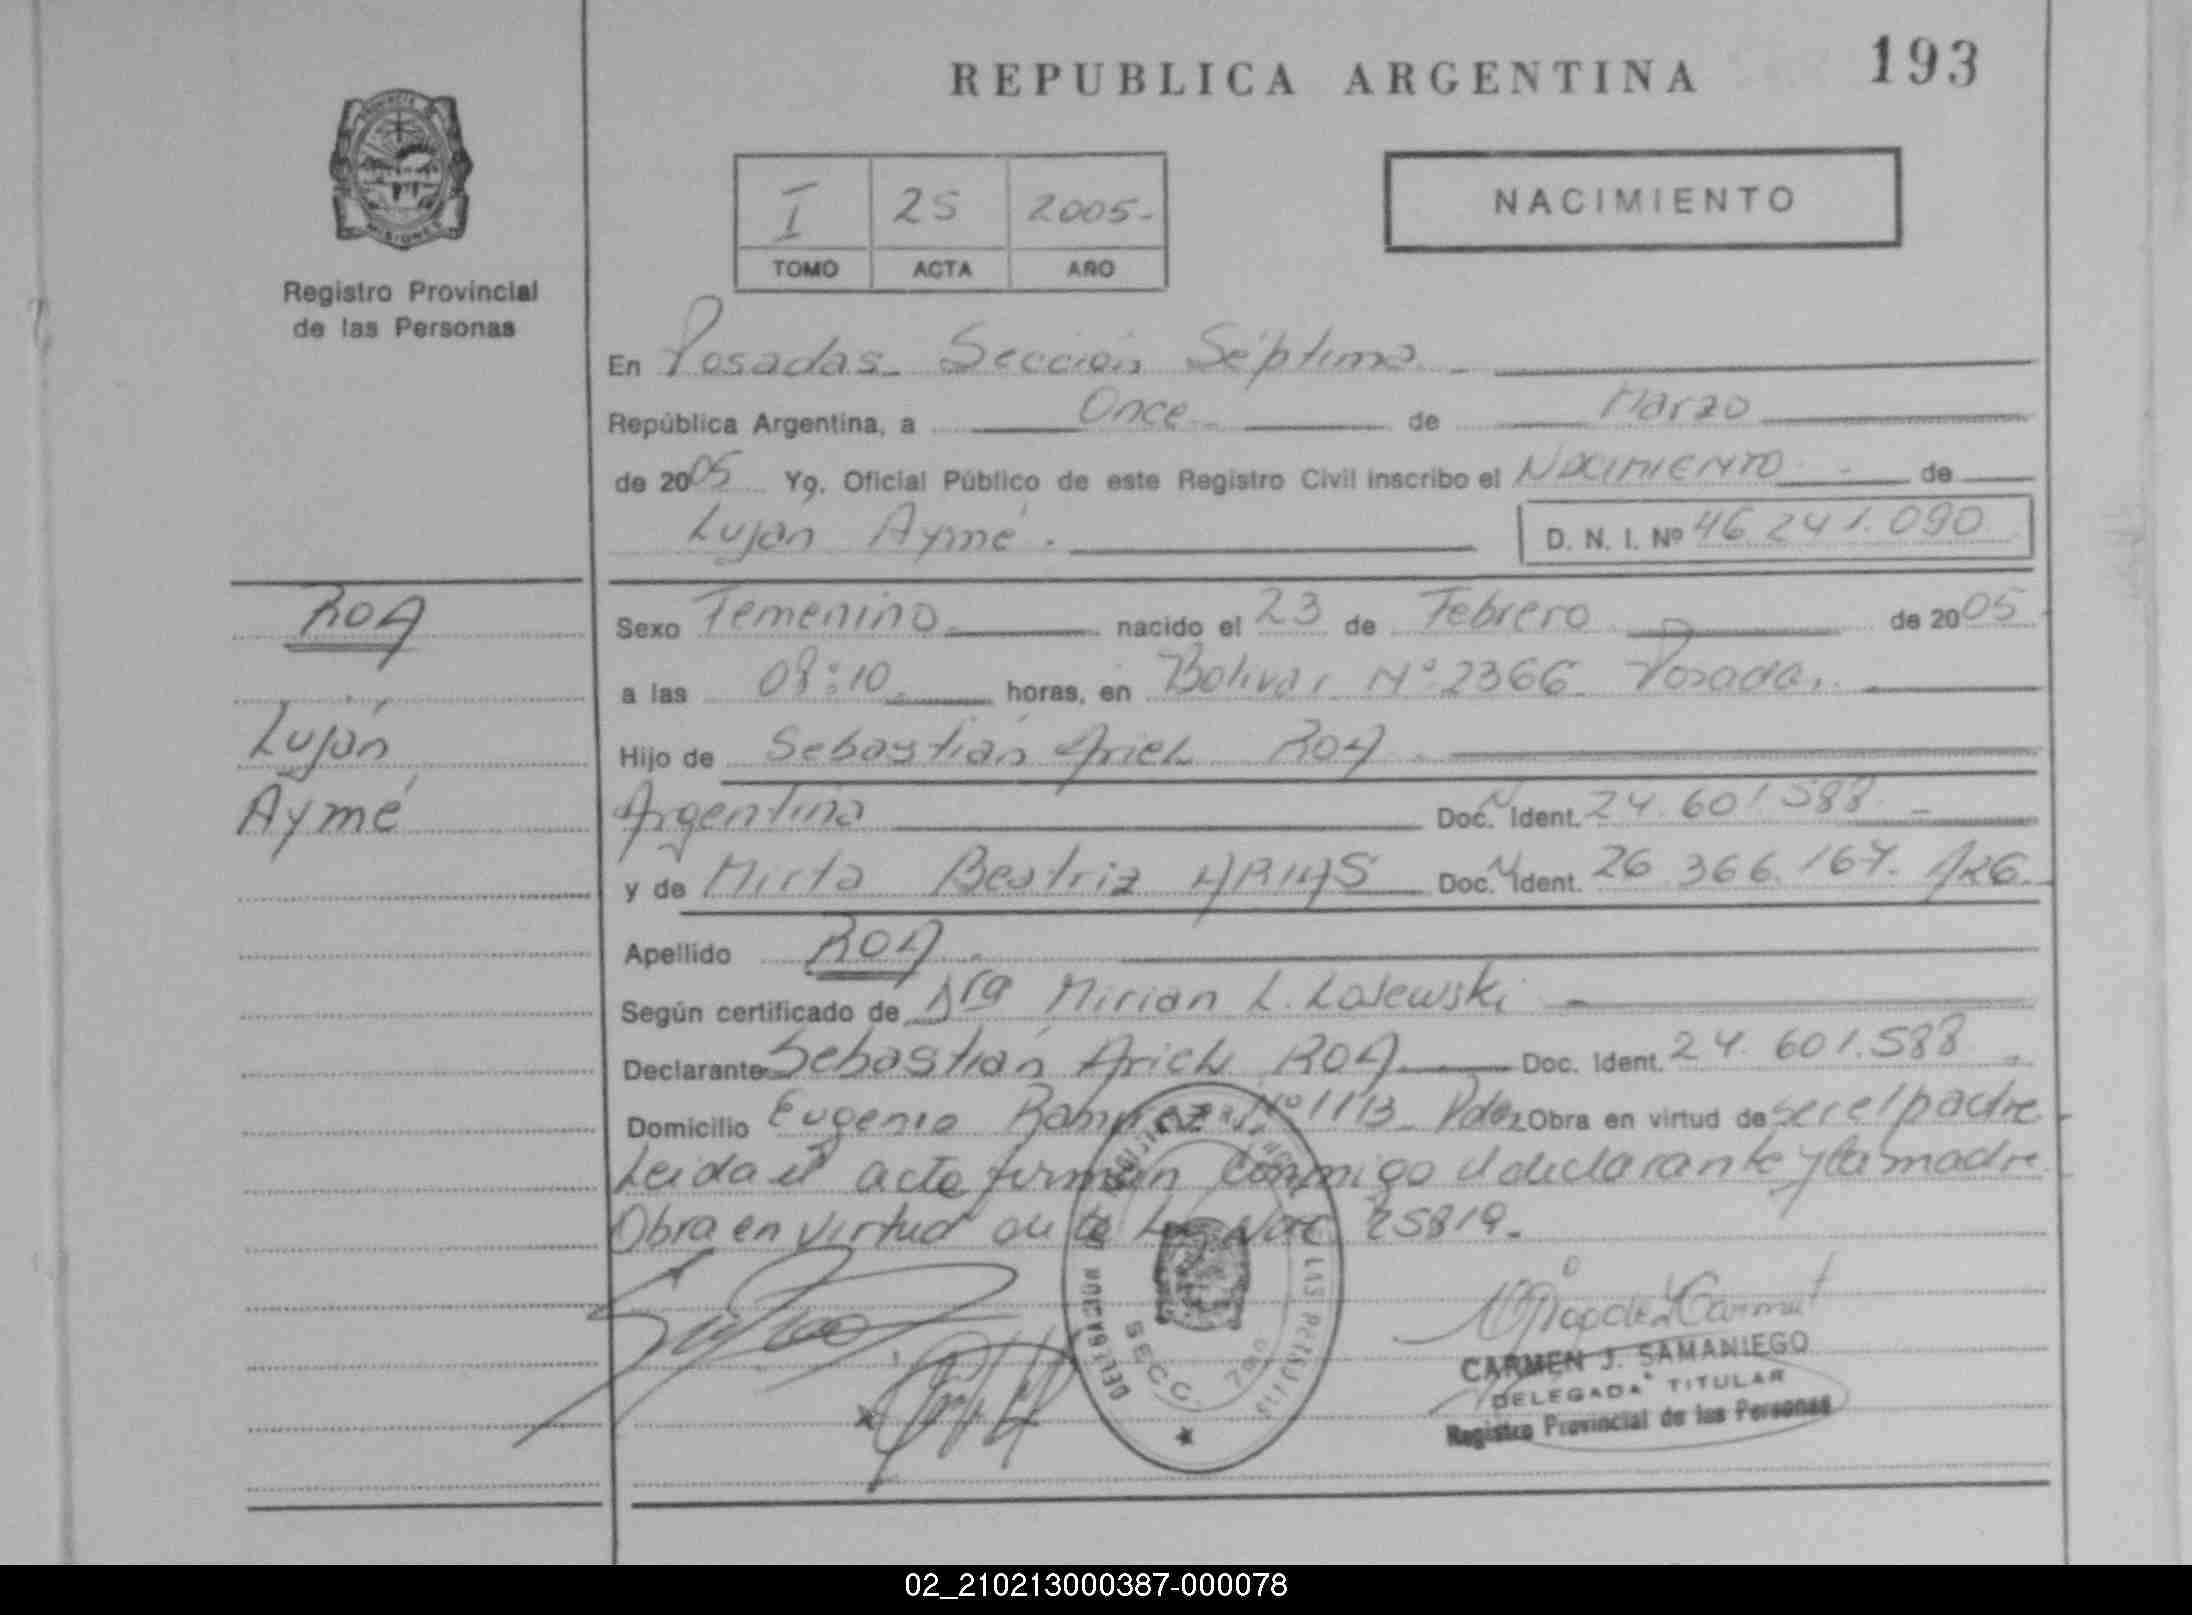 REPUBLICA ARGENTINA
193
MISIONES
Registro Provincial
de las Personas
I 25 2005-
TOMO ACTA AÑO
NACIMIENTO
En Posadas Sección Séptima
República Argentina, a Once de Marzo
de 2005 Yo, Oficial Público de este Registro Civil inscribo el Nacimiento de
Luján Aymé. D. N. I. Nº 46.241.090
ROA
Luján
Aymé
Sexo Femenino nacido el 23 de Febrero de 2005
a las 08:10 horas, en Bolivar Nº 2366 Posadas
Hijo de Sebastián Ariel ROA
Argentina Doc. Ident. 24.601.588
y de Mirta Beatriz ARIAS Doc. Ident. 26.366.167. Arg.
Apellido ROA
Según certificado de Dra Mirian L. Lalewski
Declarante Sebastián Ariel ROA Doc. Ident. 24.601.588
Domicilio Eugenio Ramirez Nº 1113 Pdas Obra en virtud de ser el padre
Leida el acta firman conmigo el declarante y la madre
Obra en virtud de la Ley Nac 25819.
DELEGACION LAS PERSONAS
SECC. 7ma
CARMEN J. SAMANIEGO
DELEGADA TITULAR
Registro Provincial de las Personas
02_210213000387-000078